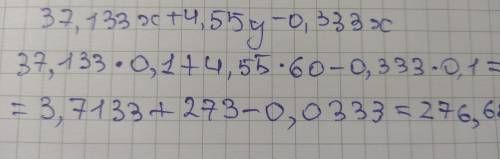 37,133x+4,55y-0,333x
37,133·0,1+4,55·60-0,333·0,1=
=3,7133+273-0,0333=276,6